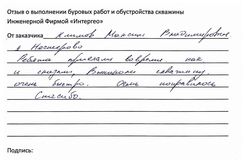 Отзыв о выполнении буровых работ и обустройства скважины
Инженерной Фирмой «Интергео»
От заказчика Климов Максим Владимирович
д Нестерово
Ребята приехали вовремя как
и считали. Выполнили скважину
очень быстро. Очень понравилось
Спасибо.
Подпись: